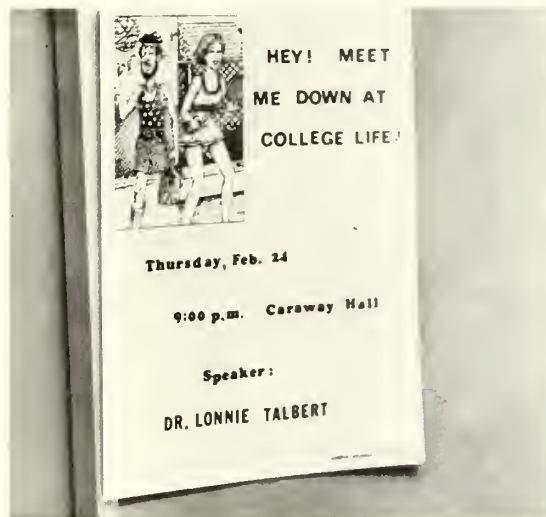 HEY! MEET
ME DOWN AT
COLLEGE LIFE!
Thursday, Feb. 24
9:00 p.m. Caraway Hall
Speaker:
DR. LONNIE TALBERT